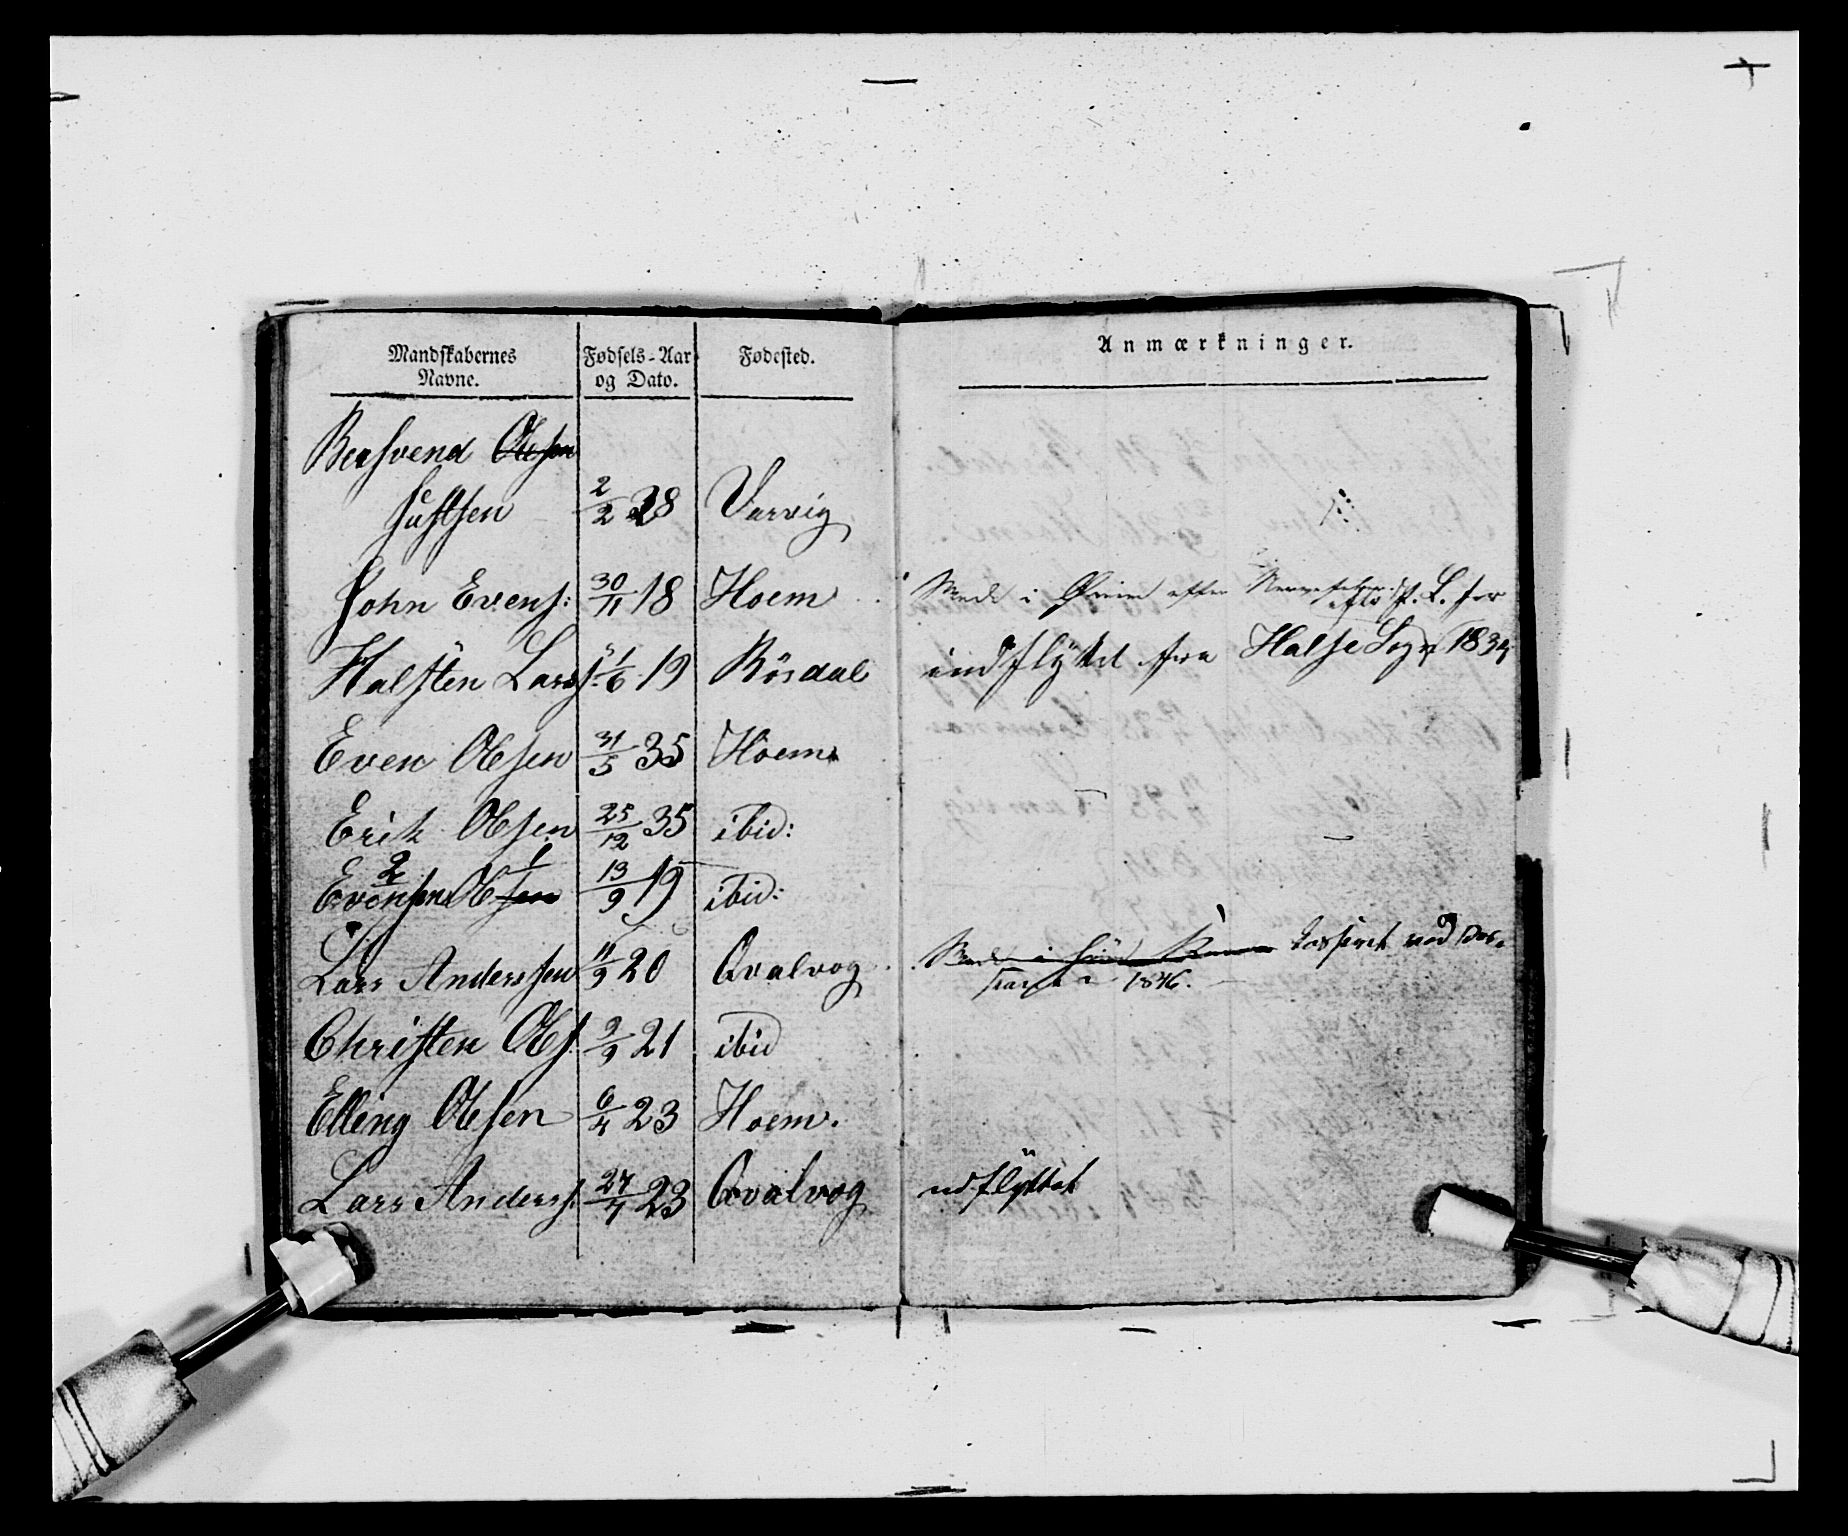 Mandskabernes Navne. Fødsels-Aar og Dato. Fødested. Anmærkninger.
Bersvend Olesen
Justsen 2/2 38 Varvig
John Evens: 30/11 18 Hoem Møde i efter f. L. for
Halsten Larss: 1/6 19 Rösdal indflÿttet fra Halse Sogn 1834
Even Olesen 31/5 35 Hoem
Erik Olesen 25/12 35 ibid:
2 1
Evensen Olesen 13/9 19 ibid:
Lars Anderssen 11/9 20 Qvalvog Møde i Casseret ved
1846.
Christen Oles: 2/9 21 ibid
Elling Olesen 6/4 23 Hoem.
Lars Anderss. 27/7 23 Qvalvog udflÿttet